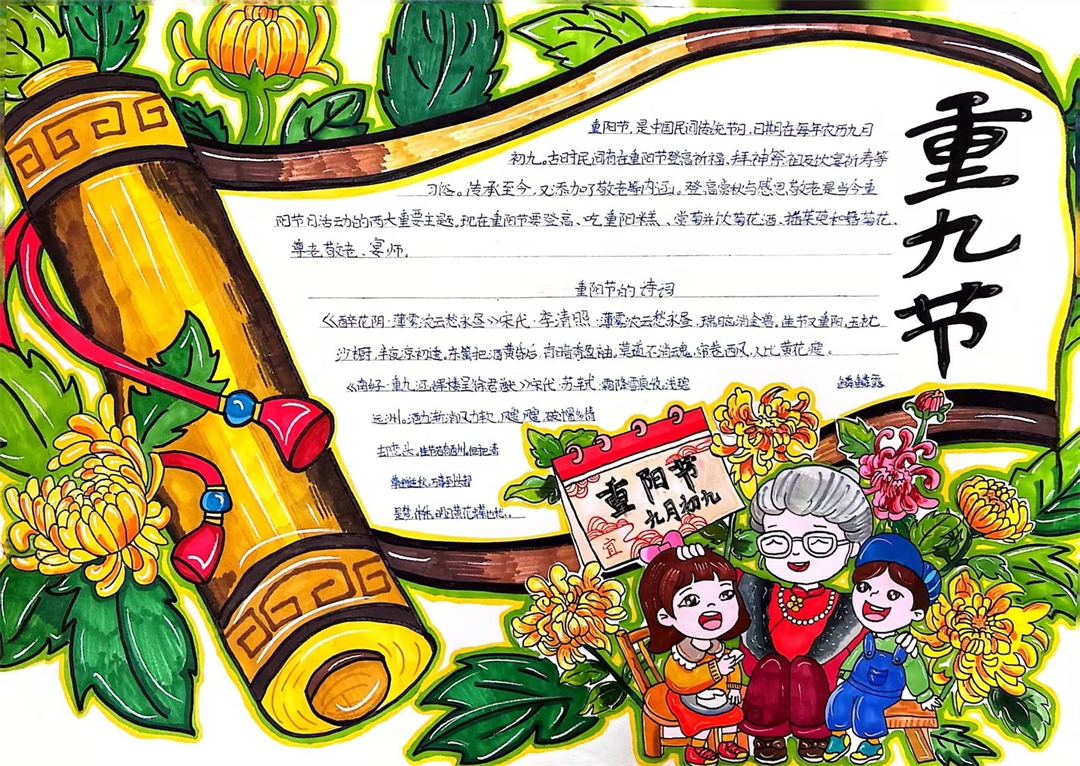 重九节
重阳节,是中国民间传统节日,日期在每年农历九月
初九。古时民间有在重阳节登高祈福、拜神祭祖及饮宴祈寿等
习俗。传承至今,又添加了敬老等内涵。登高赏秋与感恩敬老是当今重
阳节日活动的两大重要主题。现在重阳节要登高、吃重阳糕、赏菊并饮菊花酒、插茱萸和簪菊花、
尊老敬老、宴师。
重阳节的诗词
《醉花阴·薄雾浓云愁永昼》宋代·李清照·薄雾浓云愁永昼,瑞脑消金兽。佳节又重阳,玉枕
纱橱,半夜凉初透。东篱把酒黄昏后,有暗香盈袖。莫道不消魂,帘卷西风,人比黄花瘦。
《南乡·重九涵辉楼呈徐君猷》宋代·苏轼·霜降水痕收,浅碧
鳞鳞露
远洲。酒力渐消风力软,飕飕,破帽多情
却恋头。佳节若为酬。但把清
尊断送秋。万事到头都
是梦,休休。明日黄花蝶也愁。
重阳节
九月初九
宜